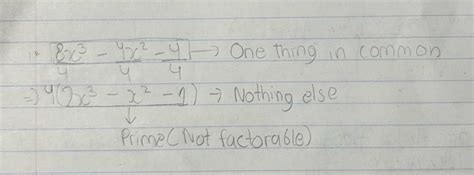 1. 8x³ - 4x² - 4 → One thing in common
4 4 4
⇒ 4(2x³ - x² - 1) → Nothing else
↓
Prime (Not factorable)